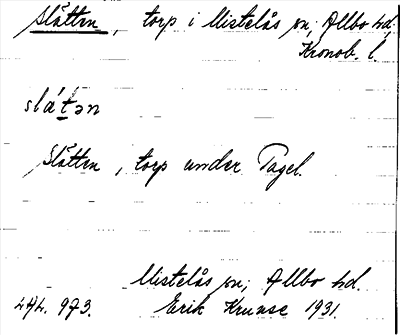 Slätten, torp i Mistelås sn; Allbo hd;
Kronob. l.
Slätten, torp under Tagel.
Mistelås sn; Allbo hd.
973. Erik Kruuse 1931.